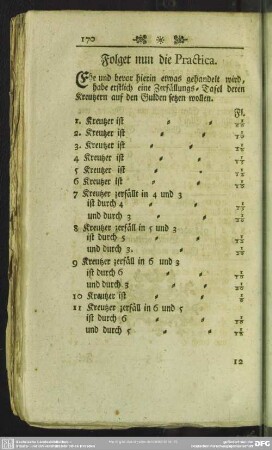 170
Folget nun die Practica.
Ehe und bevor hierin etwas gehandelt wird,
habe erstlich eine Zerfällungs-Tafel deren
Kreutzern auf den Gulden setzen wollen.
Fl.
1. Kreutzer ist " "
2. Kreutzer ist " "
3. Kreutzer ist " "
4 Kreutzer ist " "
5 Kreutzer ist " "
6 Kreutzer ist " "
7 Kreutzer zerfällt in 4 und 3
ist durch 4 " "
und durch 3 "
8 Kreutzer zerfäll in 5 und 3
ist durch 5 " "
und durch 3. "
9 Kreutzer zerfäll in 6 und 3
ist durch 6 " "
und durch 3 "
10 Kreutzer ist " "
11 Kreutzer zerfäll in 6 und 5
ist durch 6 " "
und durch 5 "
12